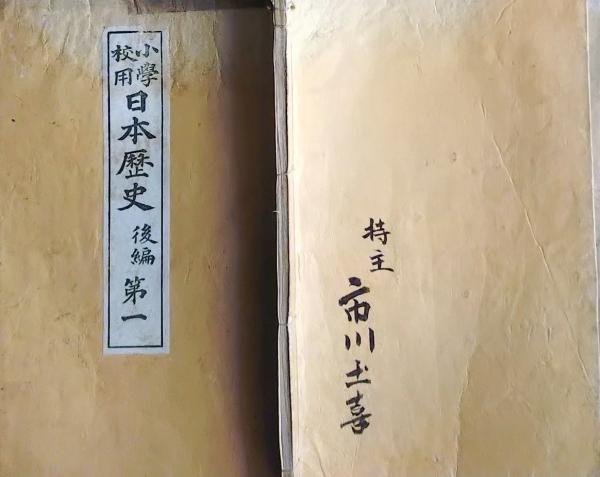 小學校用日本歷史後編第一
持主
市川土喜